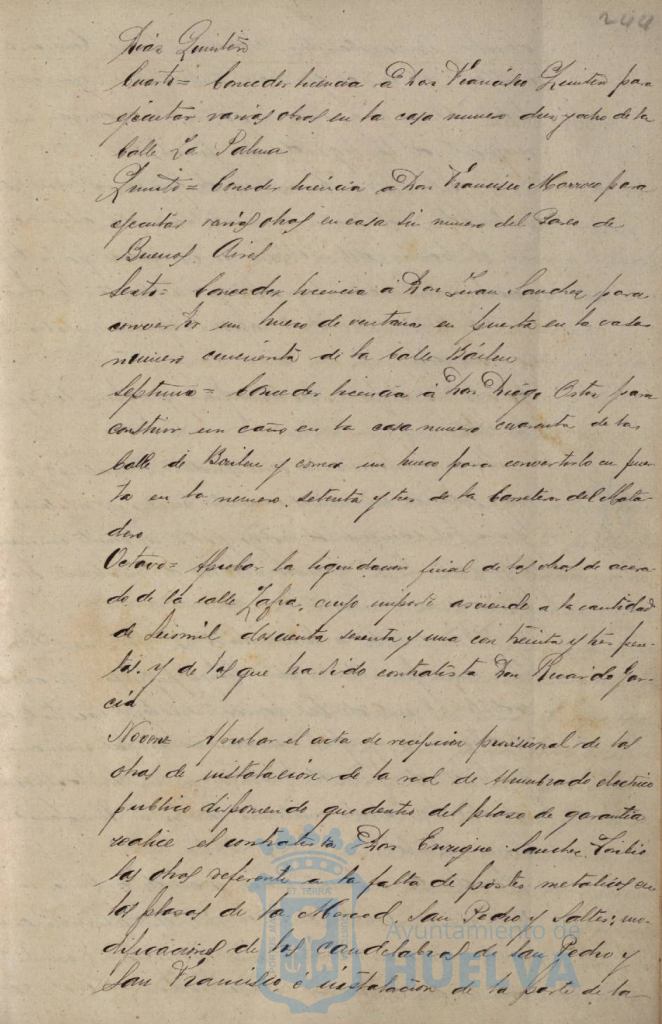 244
Diaz Quintero
Cuarto= Conceder licencia á Don Francisco Quintero para
ejecutar varias obras en la casa numero diez y ocho de la
Calle La Palma
Quinto= Conceder licencia á Don Francisco Marrero para
ejecutar varias obras en casa sin numero del Paseo de
Buenos Aires
Sexto= Conceder licencia á Don Juan Sanchez para
convertir un hueco de ventana en puerta en la casa
numero cincuenta de la Calle Bailen
Septimo= Conceder licencia á Don Diego para
construir un caño en la casa numero cuarenta de la
Calle de Bailen y un hueco para convertirlo en puer-
ta en la numero setenta y tres de la Carretera del Mata-
dero
Octavo= Aprobar la liquidación final de las obras de acera-
do de la calle Zafra, cuyo importe asciende a la cantidad
de seismil descienta sesenta y una con treinta y tres pese-
tas. y de las que ha sido contratista Don Ricardo Gar-
cia
Noveno= Aprobar el acta de recepcion provisional de las
obras de instalación de la red de Alumbrado electrico
publico disponiendo que dentro del plazo de garantia
realice el contratista Don Enrique Sanchez
las obras referente a la falta de postes metalicos en
las plazas de la Merced, San Pedro y Saltés; mo-
dificaciones de los candelabros de San Pedro y
San Francisco é instalación de la parte de la
Ayuntamiento de
HUELVA